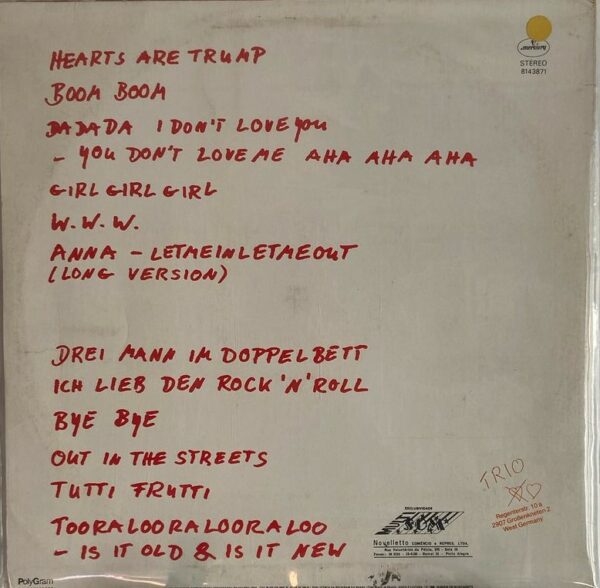 mercury
STEREO
8143871
HEARTS ARE TRUMP
BOOM BOOM
DADADA I DON'T LOVE YOU
- YOU DON'T LOVE ME AHA AHA AHA
GIRL GIRL GIRL
W.W.W.
ANNA - LETMEINLETMEOUT
(LONG VERSION)
DREI MANN IM DOPPELBETT
ICH LIEB DEN ROCK 'N' ROLL
BYE BYE
OUT IN THE STREETS
TUTTI FRUTTI
TOORALOORALOORALOO
- IS IT OLD & IS IT NEW
TRIO
Regenterstr. 10 a
2907 Großenkneten 2
West Germany
EXCLUSIVIDADE
Novelletto COMÉRCIO e REPRES. LTDA.
Porto Alegre
PolyGram